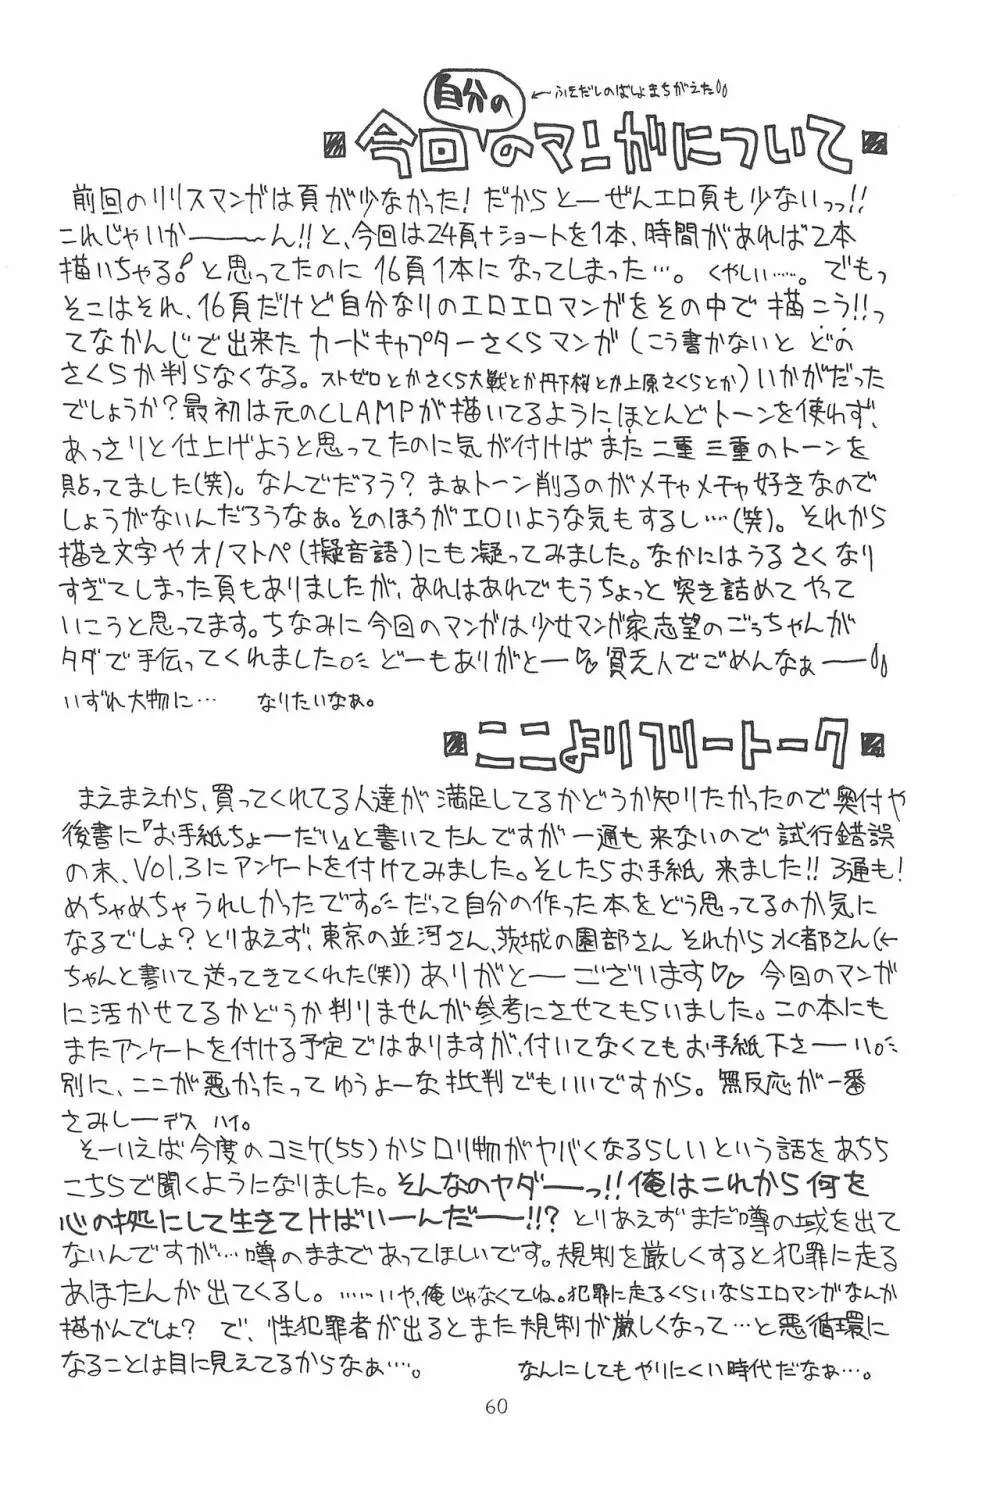 自分の ←ふきだしのばしょまちがえた
今回のマンガについて
前回のリリスマンガは頁が少なかった!だからとーぜんエロ頁も少ないっっ!!
これじゃいか――〜ん!!と、今回は24頁+ショートを1本、時間があれば2本
描いちゃる!と思ってたのに16頁1本になってしまった…。くやしい……。でもっ
そこはそれ、16頁だけど自分なりのエロエロマンガをその中で描こう!!っ
てなかんじで出来たカードキャプターさくらマンガ(こう書かないとどの
さくらか判らなくなる。ストゼロとかさくら大戦とか丹下桜とか上原さくらとか)いかがだった
でしょうか?最初は元のCLAMPが描いてるように、ほとんどトーンを使わず、
あっさりと仕上げようと思ってたのに気が付けばまた二重三重のトーンを
貼ってました(笑)。なんでだろう?まぁトーン削るのがメチャメチャ好きなので
しょうがないんだろうなぁ。そのほうがエロいような気もするし…(笑)。それから
描き文字やオノマトペ(擬音語)にも凝ってみました。なかにはうるさくなり
すぎてしまった頁もありましたが、あれはあれでもうちょっと突き詰めてやって
いこうと思ってます。ちなみに今回のマンガは少女マンガ家志望のごぅちゃんが
タダで手伝ってくれました。どーもありがとー♡貧乏人でごめんなぁー
いずれ大物に… なりたいなぁ。
ここよりフリートーク
まえまえから、買ってくれてる人達が満足してるかどうか知りたかったので奥付や
後書に『お手紙ちょーだい』と書いてたんですが一通も来ないので試行錯誤
の末、Vol.3にアンケートを付けてみました。そしたらお手紙来ました!!3通も!
めちゃめちゃうれしかったです。だって自分の作った本をどう思ってるのか気に
なるでしょ?とりあえず、東京の並河さん、茨城の園部さんそれから水都さん(←
ちゃんと書いて送ってきてくれた(笑))ありがとーございます♡♡今回のマンガ
に活かせてるかどうか判りませんが参考にさせてもらいました。この本にも
またアンケートを付ける予定ではありますが、付いてなくてもお手紙下さーい。
別に、ここが悪かったってゆうよーな批判でもいいですから。無反応が一番
さみしーデス ハイ。
そーいえば今度のコミケ(55)からロリ物がヤバくなるらしいという話をあちら
こちらで聞くようになりました。そんなのヤダーっ!!俺はこれから何を
心の拠にして生きてけばいーんだー!!?とりあえずまだ噂の域を出て
ないんですが…噂のままであってほしいです。規制を厳しくすると犯罪に走る
あほたんが出てくるし。……いや、俺じゃなくてね。犯罪に走るくらいならエロマンガなんか
描かんでしょ?で、性犯罪者が出るとまた規制が厳しくなって…と悪循環に
なることは目に見えてるからなぁ…。 なんにしてもやりにくい時代だなぁ…。
60